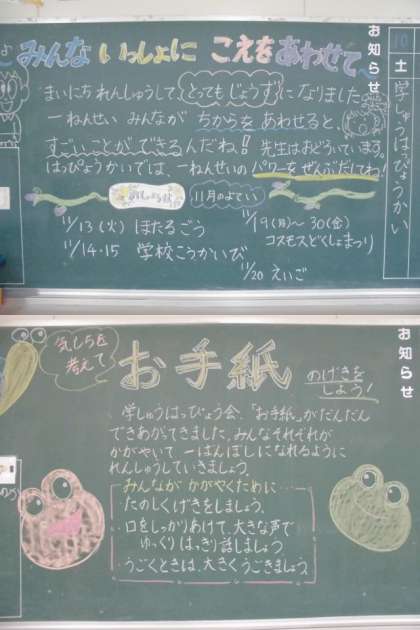 みんな いっしょに こえを あわせて
お知らせ
10
土
学しゅうはっぴょうかい
まいにち れんしゅうして、とっても じょうずに なりました。
一ねんせい みんなが ちからを あわせると、
すごいことが できるんだね!! 先生はおどろいています。
はっぴょうかいでは、一ねんせいの パワーを ぜんぶだしてね!
おしらせ
11月のよてい
11/13(火) ほたるごう
11/14・15 学校こうかいび
11/19(月)~30(金)
コスモスどくしょまつり
11/20 えいご
お知らせ
気もちを
考えて
お手紙
のげきを
しよう!
学しゅうはっぴょう会、「お手紙」がだんだん
できあがってきました。みんなそれぞれが
かがやいて 一ばんぼしになれるように
れんしゅうしていきましょう。
みんなが かがやくために…
・たのしくげきをしましょう。
・口をしっかりあけて、大きな声で
ゆっくりはっきり話しましょう。
・うごくときは、大きくうごきましょう。